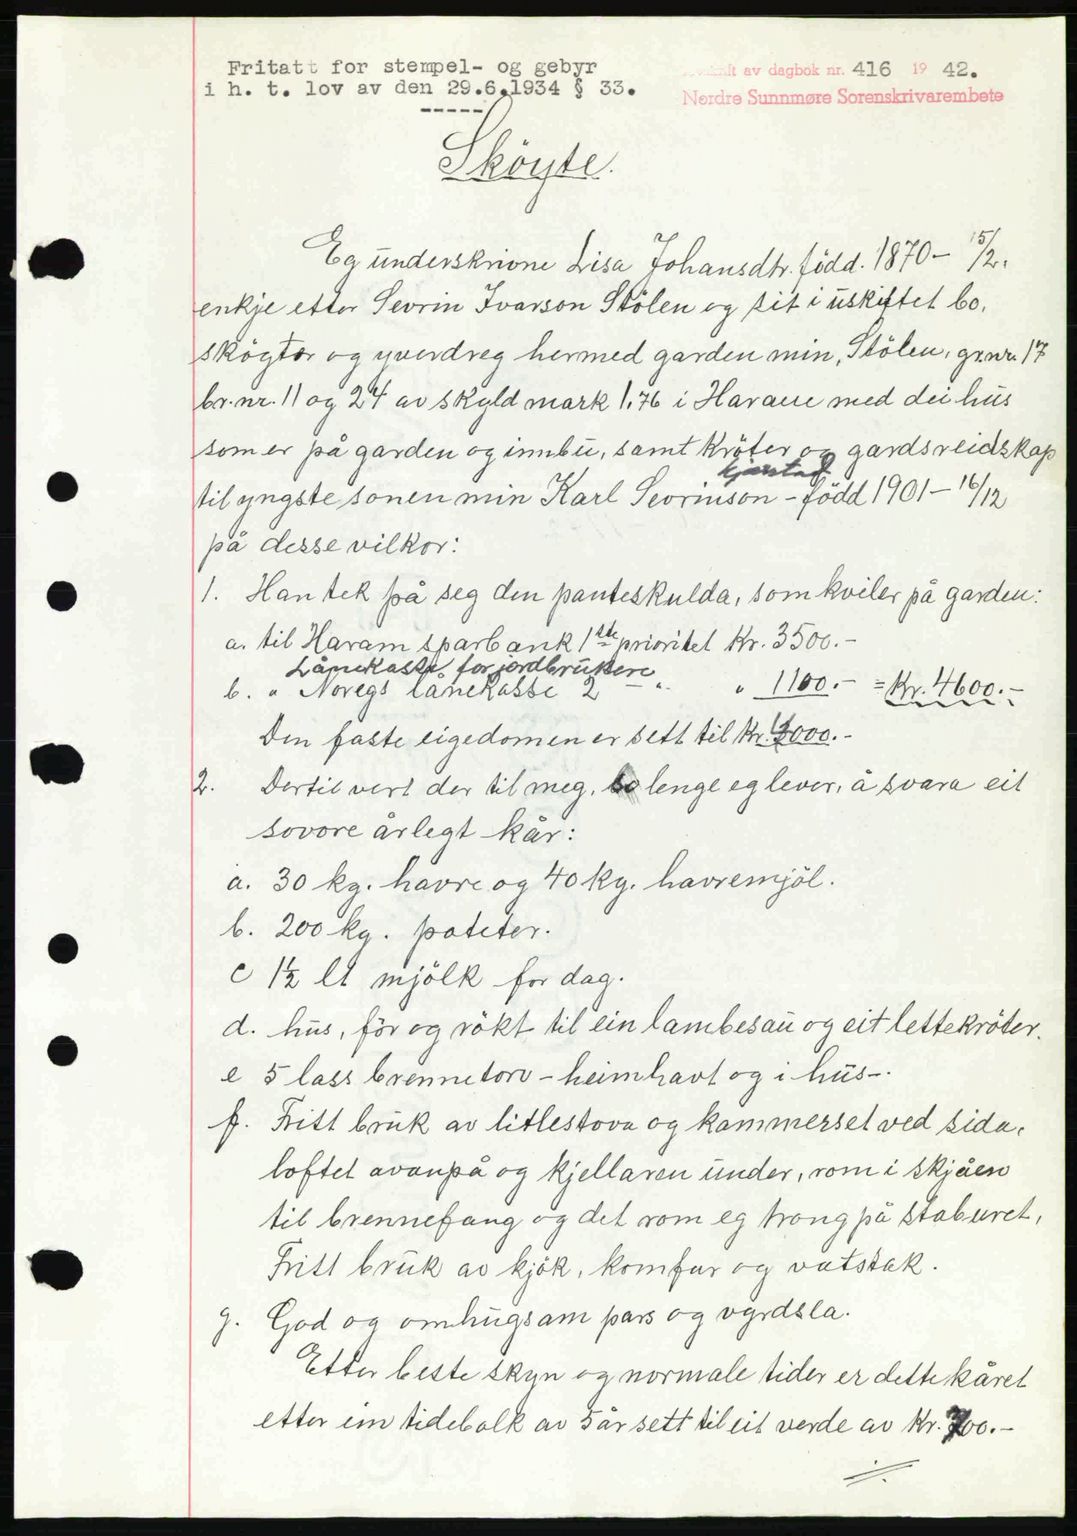 Fritatt for stempel- og gebyr
i h. t. lov av den 29.6.1934 § 33.
-----
av dagbok nr. 416 19 42.
Nordre Sunnmøre Sorenskrivarembete
Sköyte.
Eg underskrivne Lisa Johansdtr. född. 1870 - 15/2.
enkje etter Sevrin Ivarson Stölen og sit i uskiftet bo,
sköytor og yverdreg hermed garden min, Stölen, gr.nr. 17
br.nr. 11 og 24 av skyld mark 1,76 i Haram med dei hus
som er på garden og innbu, samt kröter og gardsreidskap
kjærstad
til yngste sonen min Karl Sevrinson - född 1901 - 16/12
på desse vilkor:
1. Han tek på seg den panteskulda, som kviler på garden:
a. til Haram sparbank 1ste prioritet Kr. 3500.-
Lånekassa for jordbrukere
b. " Noregs lånekasse 2 - " " 1100.- = Kr. 4600.-
Den faste eigedomen er sett til Kr. 4000.-
2. Dertil vert der til meg, so lenge eg lever, å svara eit
sovore årlegt kår:
a. 30 kg. havre og 40 kg. havremjöl.
b. 200 kg. poteter.
c 1½ lt mjölk for dag.
d. hus, för og rökt til ein lambesau og eit lettekröter.
e 5 lass brennetorv - heimhavt og i hus -.
f. Fritt bruk av litlestova og kammerset ved sida,
loftet avanpå og kjellaren under, rom i skjåen
til brennefang og det rom eg trong på staburet,
Fritt bruk av kjök, komfur og vatstak.
g. God og omhugsam pass og vyrdsla.
Etter beste skyn og normale tider er dette kåret
etter ein tidebolk av 5 år sett til eit verde av Kr. 700.-